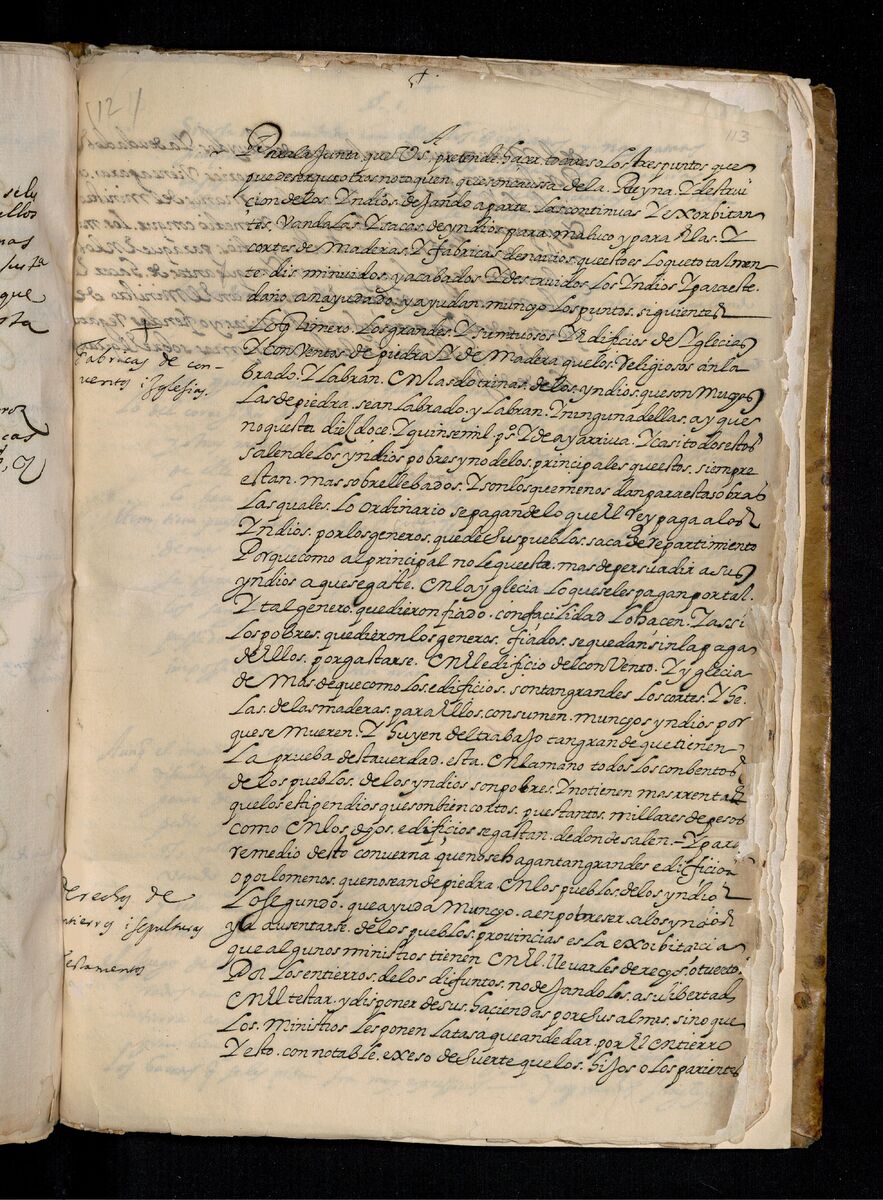 †
[12]
113
En la Junta que Us. pretende hazer. tocare solos tres puntos que
puede ser que otros no toquen. que son caussa de la. Reyna. Y destrui
cion de los. Yndios. dejando a parte. Las continuas Y exorbitan
tes. Vandalas Y sacas. de yndios para maluco y para Alas. Y
cortes de Maderas. Y fabricas de navios. que esto es lo que totalmen
te. dis minuidos. y acabados Y des truidos. los Yndios Y para este.
daño. an ayudado. y ayudan. muncho Los puntos. siguientes
Lo Primero. Los grandes. Y sumtuosos Edificios de Yglecias
Y conVentos. de piedra Y de Madera que los. Religiosos an la
brado. Y labran. En las dotrinas. de los. yndios. que son Munchas
Las de piedra. se an Labrado. y Labran. Y ninguna dellas. ay que
no questa diez doce. Y quinse mil p.os Y de ay arriva. Y casi todo esto
sale de los yndios pobres y no de los. principales que estos. siempre
estan. mas sobrellebados. Y son los que menos dan para estas obras
Las quales. Lo ordinario se pagan de lo que El rey paga a los
Yndios. por los generos. que de sus pueblos. saca de repartimiento
Porque como al principal no le questa. mas de persuadir a sus
yndios a que se gaste. En la yglecia Lo que se les pagan por tal.
Y tal genero. que dieron fiado. con facilidad Lo hacen. Y assi
Los pobres. que dieron los generos. fiados. se quedan sin la paga
de Ellos. por gastarse. En El edificio del conVento. Y yglecia
de Mas de que como los. edificios. son tan grandes Los cortes. Y ha
las. de las maderas. para Ellos. consumen. munchos yndios por
que se Mueren. Y huyen del trabajo tan grande que tienen
La prueba desta verdad. esta En la mano todos los conbentos
de los pueblos. de los yndios son pobres. Y no tienen mas renta
que los estipendios que son bien cortos. pues tantos. millares de pesos
como En los dhos. edificios se gastan. de donde salen.- Y para
remedio desto converna. que no se hagan tan grandes edificios
o por lo menos. que no sean de piedra En los pueblos. de los yndios
Lo segundo. que ayuda Muncho. a enpobreser. a los yndios
y a ausentarse. de los pueblos. y provincias es La exorbitancia
que algunos ministros tienen En El llevarles derechos
Por Los entierros. de los difuntos. no dejandolos. a su libertad
En El testar. y disponer de sus. haciendas por sus almas. sino que
Los. Ministros Les ponen La tasa que an de dar. por El Entierro
Y esto. con notable. exeso de suerte que los. hijos o los parientes
Fabricas de con-
ventos i Yglesias.
Derechos de
entierros i sepulturas
testamentos